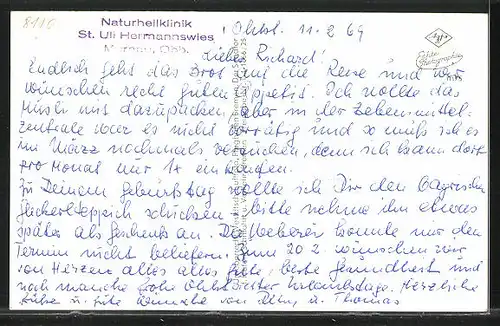 8110
Naturheilklinik
St. Uli Hermannswies
Murnau, Obb.
Ohlst. 11.2.69
Agfa
Echte
Photographie
Lieber Richard!
Endlich geht das Brot auf die Reise und wir
wünschen recht guten Appetit. Ich wollte das
Müsli mit dazupacken, aber in der Lebensmittel-
zentrale war es nicht vorrätig und so muß ich es
im März nochmals versuchen, denn ich kann dort
pro Monat nur 1x einkaufen.
Zu Deinem Geburtstag wollte ich Dir den bayrischen
Fleckerlteppich schicken, bitte nehme ihn etwas
später als Geschenk an. Die Weberei konnte nur den
Termin nicht beliefern. Zum 20.2. wünschen wir
von Herzen alles alles Gute, beste Gesundheit und
noch manche frohe Ohlstädter Urlaubstage. Herzliche
Grüße u. gute Wünsche von u. Thomas